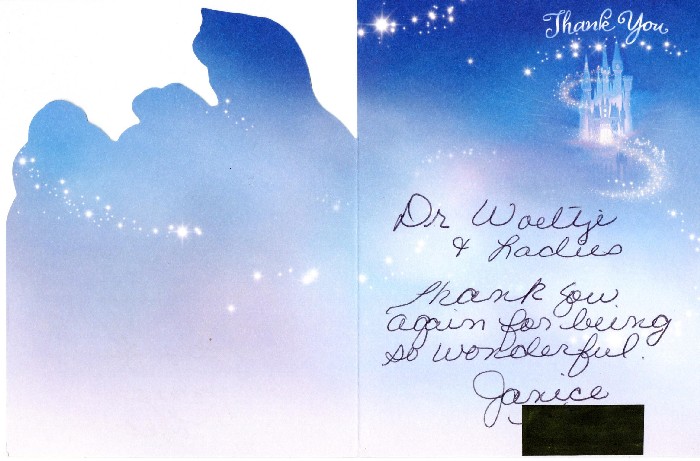 Thank You
Dr Woeltje
& Ladies
Thank You
again for being
so wonderful.
Janice